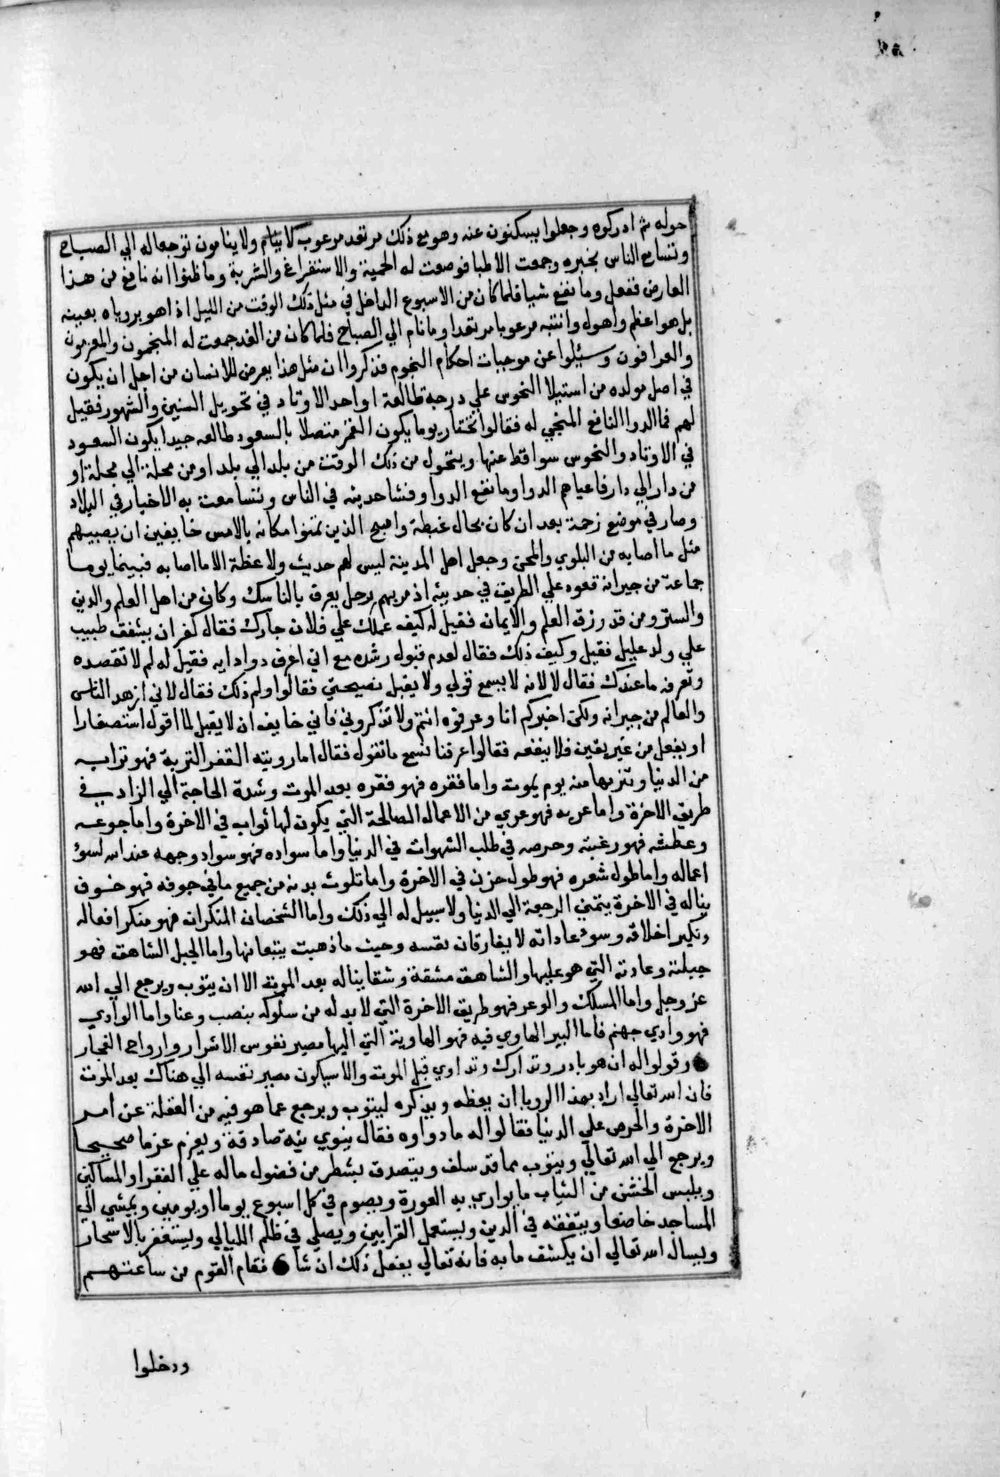 حوله ثم ادركوه وجعلوا يسكنون عنه وهو مع ذلك مرتعد مرعوب لا ينام ولا ينامون توجعا له الي الصباح
وتسامع الناس بخبره وجمعت الاطبا فوصفت له الحمية والاستفراغ والشربة وما ظنوا انه نافع من هذا
العارض ففعل وما نفع شيا فلما كان من الاسبوع الداخل في مثل ذلك الوقت من الليل اذا هو برؤياه بعينه
بل هو اعظم واهول وانتبه مرعوبا مرتعدا وما نام الي الصباح فلما كان من الغد جمعت له المنجمون والمعزمون
والعرافون وسيلوا عن موجبات احكام النجوم فذكروا ان مثل هذا يعرض للانسان من اجل ان يكون
في اصل مولده من استيلا النحوس علي درجة طالعة او احد الاوتاد في تحويل السنين والشهور فقيل
لهم فما الدوا النافع المنجي له فقالوا يختار يوما يكون القمر متصلا بالسعود طالعه جيدا يكون السعود
في الاوتاد والنحوس سواقط عنها ويتحول من ذلك الوقت من بلد الي بلد او من محلة الي محلة او
من دار الي دار فاعياهم الدوا وما نفع الدوا وفشا حديثه في الناس وتسامعت به الاخبار في البلاد
وصار في موضع زحمة بعد ان كان بحال غبطة واصبح الذين تمنوا مكانه بالامس خايفين ان يصيبهم
مثل ما اصابه من البلوي والمحن وجعل اهل المدينة ليس لهم حديث ولا عظة الا ما اصابه فبينما يوما
جماعة من جيرانه قعود علي الطريق في حديثه اذ مر بهم رجل يعرف بالناسك وكان من اهل العلم والدين
والستر ومن قد رزق العلم والايمان فقيل له كيف عملك علي فلان جارك فقال كغران يشفق طبيب
علي ولد عليل فقيل وكيف ذلك فقال لعدم قبول رشده مع اني اعرف دوا دايه فقيل له لم لا تقصده
وتعرفه ما عندك فقال لا لانه لا يسمع قولي ولا يقبل نصيحتي فقالوا ولم ذلك فقال لاني ازهد الناس
والعالم من جيرانه ولكن اخبركم انا وعرفوه انتم ولا تذكروني فاني خايف ان لا يقبل لما اقول استصغارا
او يفعل من غير يقين فلا ينفعه فقالوا عرفنا نسمع ما تقول فقال اما رويته القفر التربة فهو ترابه
من الدنيا وتنزيها منه يوم يموت واما فقره فهو فقره بعد الموت وشدة الحاجة الي الزاد في
طريق الاخرة واما عريه فهو عري من الاعمال الصالحة التي يكون لها ثواب في الاخرة واما جوعه
وعطشه فهو رغبته وحرصه في طلب الشهوات في الدنيا واما سواده فهو سواد وجهه عند الله لسوؤ
اعماله واما طول شعره فهو طول حزن في الاخرة واما تلوث بدنه من جميع ما في جوفه فهو خسوف
يناله في الاخرة يتمني الرجعة الي الدنيا ولا سبيل له الي ذلك واما الشخصان المنكران فهو منكر افعاله
ونكير اخلاقه وسوء عاداته لا يفارقان نفسه وحيث ما ذهبت يتبعانها واما الجبل الشاهق فهو
جبلته وعادته التي هو عليها والشاهق مشقة وشقا يناله بعد الموت الا ان يتوب ويرجع الي الله
عز وجل واما المسلك والوعر فهو طريق الاخرة التي لا بد له من سلوكه بنصب وعنا واما الوادي
فهو وادي جهنم فاما البير الهاوي فيه فهو الهاوية التي اليها مصير نفوس الاشرار وارواح الفجار
● وقولوا له ان هو بادر وتدارك وتداوي قبل الموت والا سيكون مصير نفسه الي هناك بعد الموت
فان الله تعالي اراد بهذا الرويا ان يعظه ويذكره ليتوب ويرجع عما هو فيه من الغفلة عن امر
الاخرة والحرص علي الدنيا فقالوا له ما دواوه فقال ينوي نية صادقة ويعزم عزما صحيحا
ويرجع الي الله تعالي ويتوب مما قد سلف ويتصدق بشطر من فضول ماله علي الفقرا والمساكين
ويلبس الخشن من الثياب ما يواري به العورة ويصوم في كل اسبوع يوما او يومين ويمشي الي
المساجد خاضعا ويتفقه في الدين ويستعمل القرابين ويصلي في ظلم الليالي ويستغفر بالاسحار
ويسال الله تعالي ان يكشف ما به فانه تعالي يفعل ذلك ان شا ● فقام القوم من ساعتهم
ودخلوا